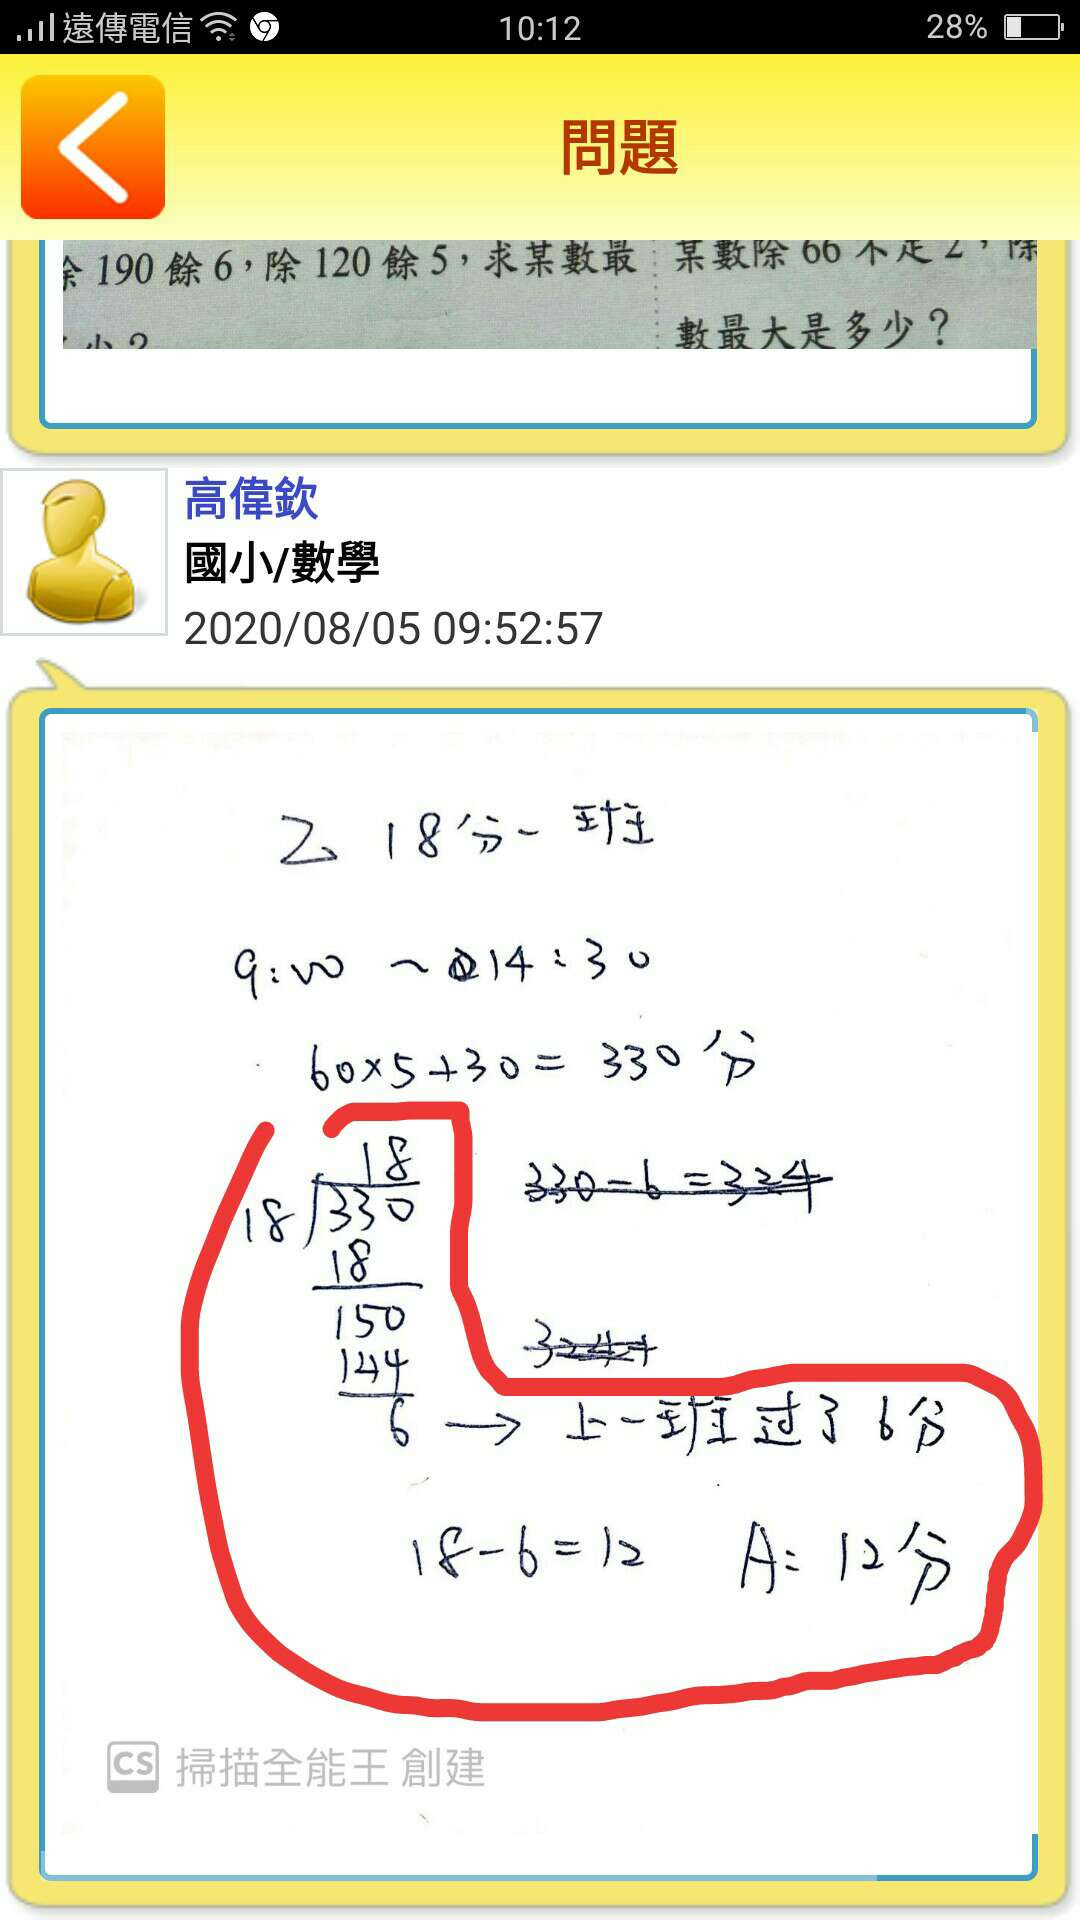 遠傳電信 10:12 28%
問題
190 餘 6,除 120 餘 5,求某數最
某數除 66 不足 2,除
數最大是多少?
高偉欽
國小/數學
2020/08/05 09:52:57
乙 18分一班
9:00 ~ 14:30
60×5+30= 330分
18
18 330
330-6=324
18
150
144
6 → 上一班过了6分
18-6=12 A: 12分
CS 掃描全能王 創建